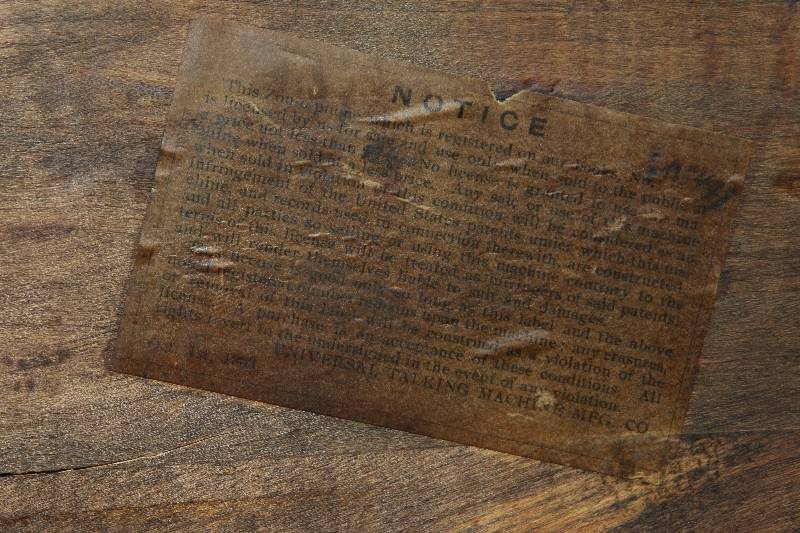 NOTICE
This Zon-o-phone, which is registered on our books, No.
is licensed by us for and use only when sold to the public at
a price not less than No license is granted to use this ma
chine when sold at a less price. Any sale or use of the machine
when sold in violation of this condition will be considered as an
infringement of the United States patents under which this ma-
chine, and records used in connection therewith, are constructed,
and all parties so selling or using the machine contrary to the
terms of this license will be treated as infringers of said patents,
and will render themselves liable to suit and damages.
license is good only so long as this label and the above
registered number remains upon the machine, any erasures,
or removal of this label will be construed as a violation of the
license. A purchase is an acceptance of these conditions. All
rights revert to the undersigned in the event of any violation.
UNIVERSAL TALKING MACHINE MFG. CO